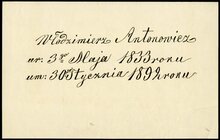 Włodzimierz Antonowicz
ur: 3go Maja 1833 roku
um: 30 Stycznia 1892 roku